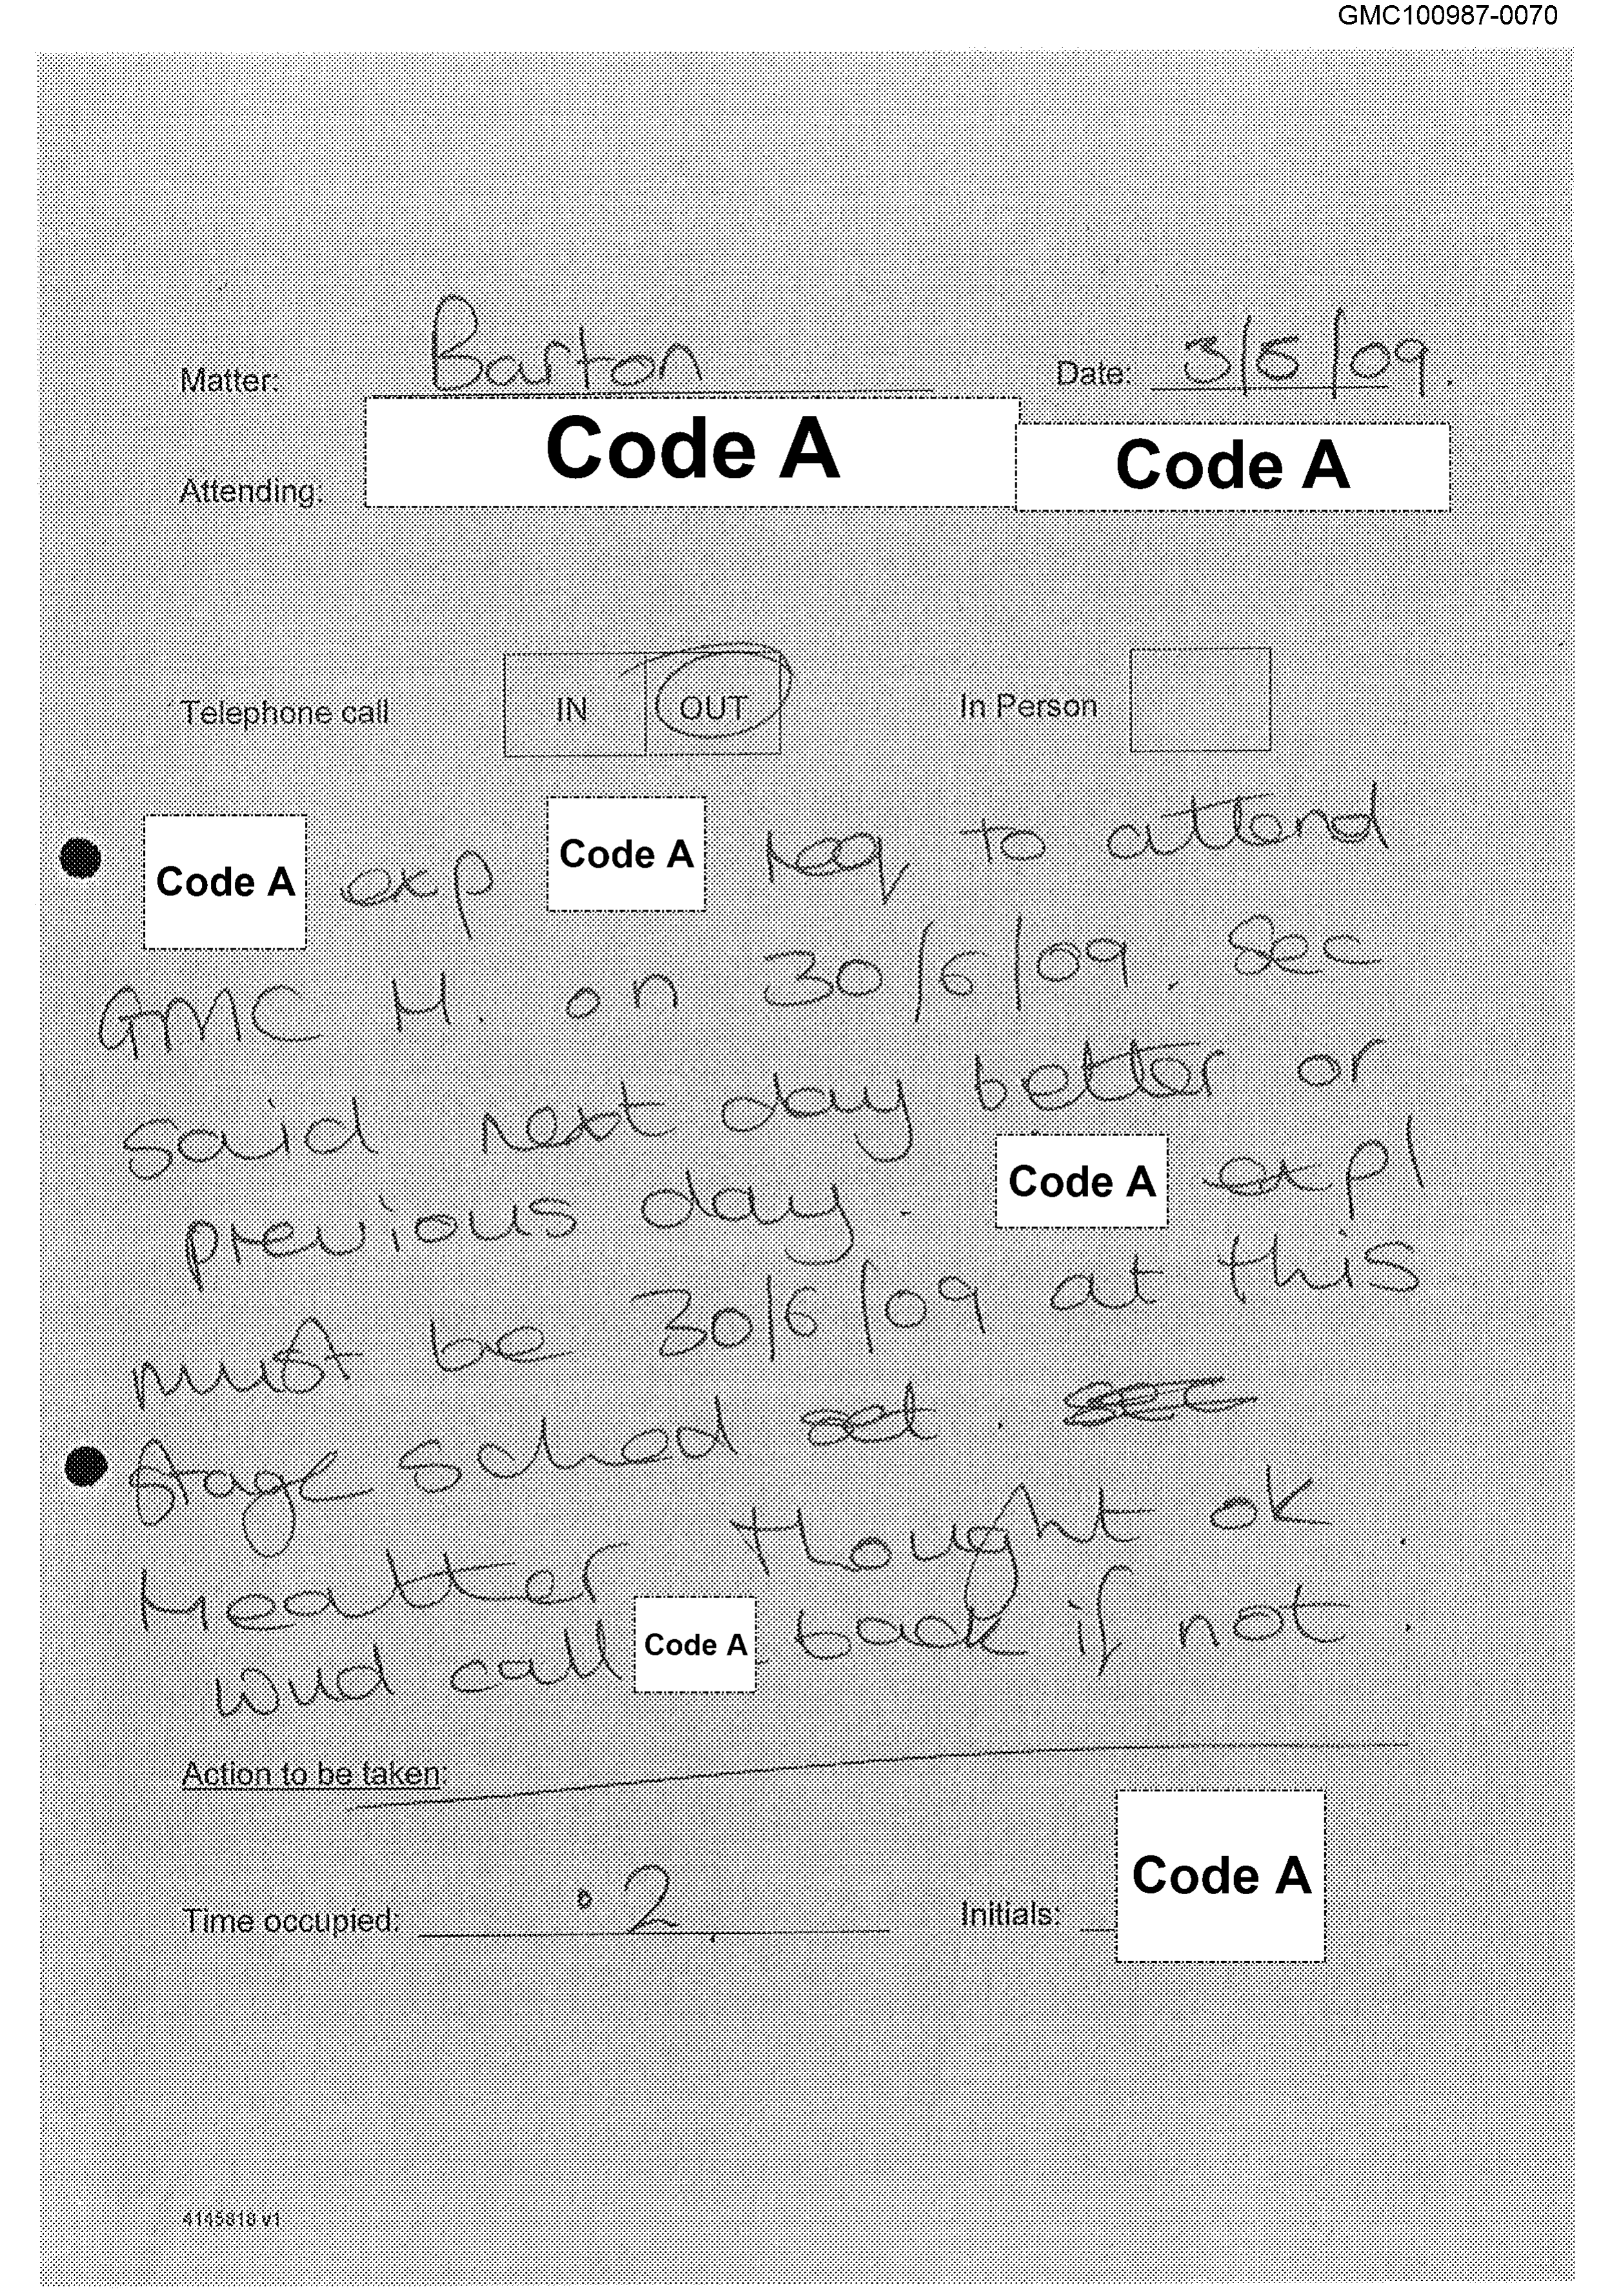 GMC100987-0070
Matter: Barton Date: 3/5/09.
Code A Code A
Attending:
Telephone call IN OUT In Person
Code A exp Code A req to attend
GMC H. on 30/6/09. Sec
said next day better or
previous day. Code A expl
must be 30/6/09 at this
stage sched set.
thought ok.
woud call Code A back if not.
Action to be taken:
Time occupied: .2 Initials: Code A
4145818 v1